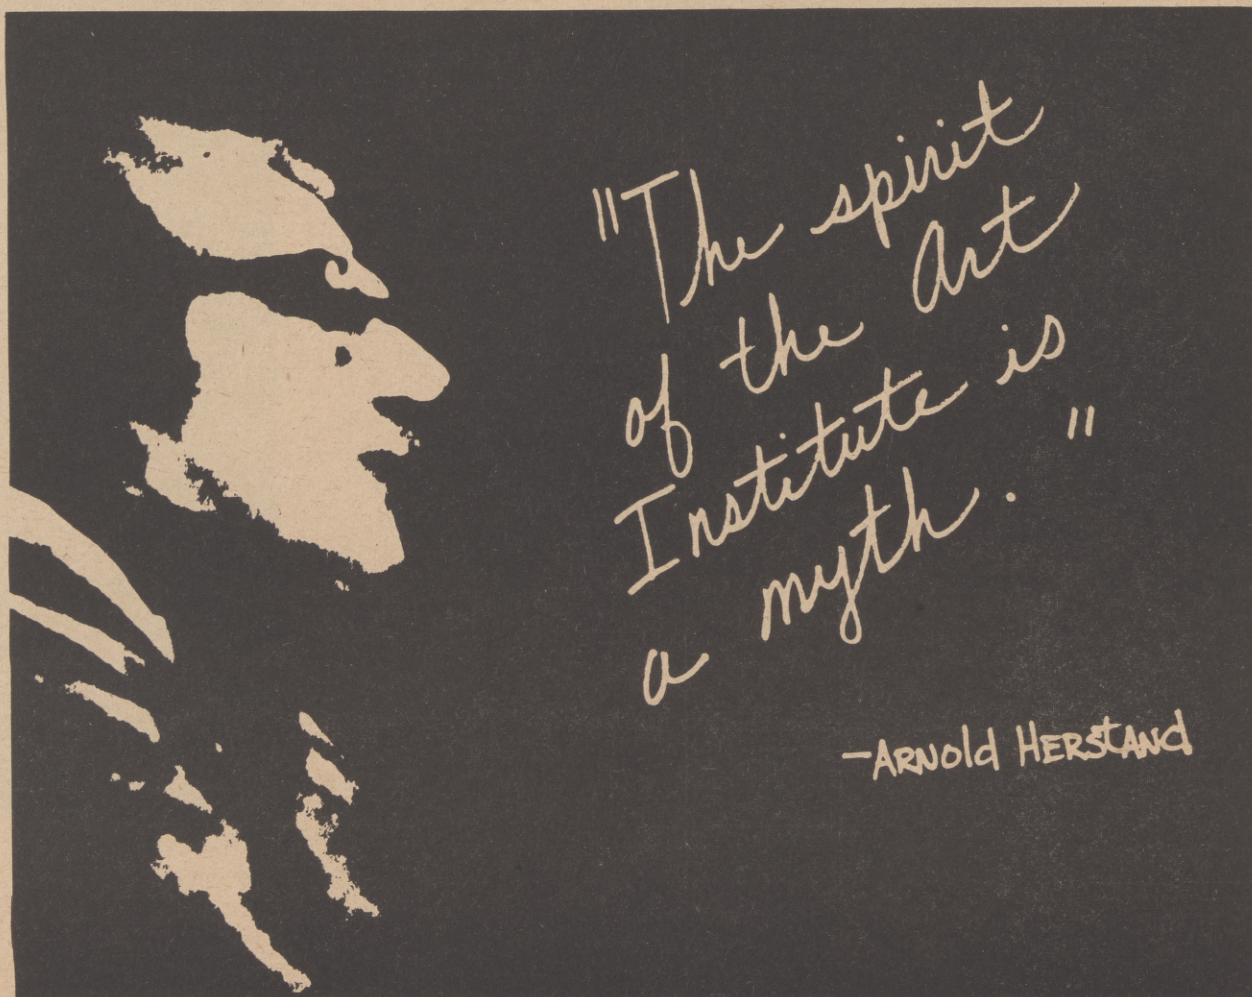 "The spirit
of the Art
Institute is
a myth."
-ARNOld HERStANd